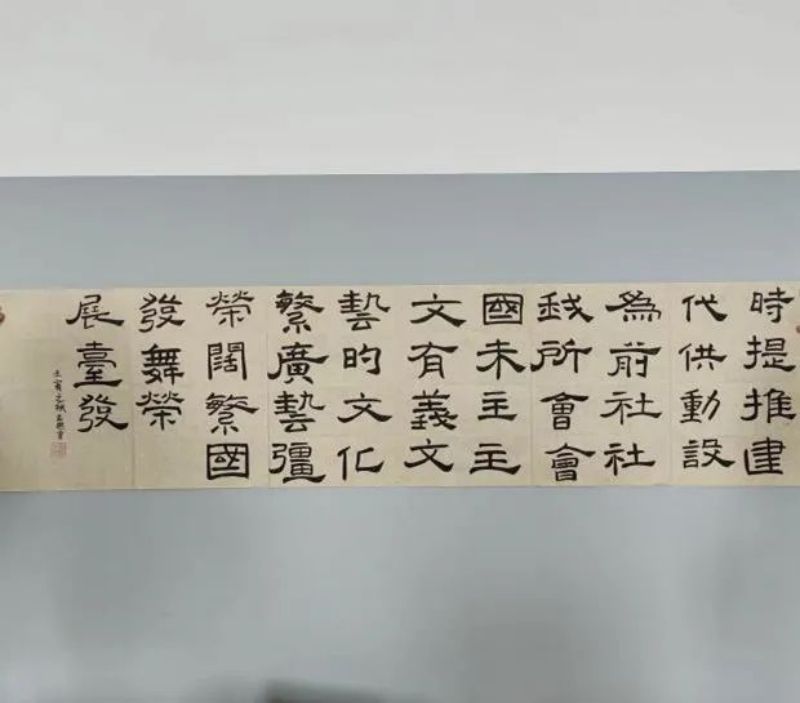 時代為我國文藝繁榮發展
提供前所未有的廣闊舞臺
推動社會主義文藝繁榮發
建設社會主義文化彊國
壬寅之秋